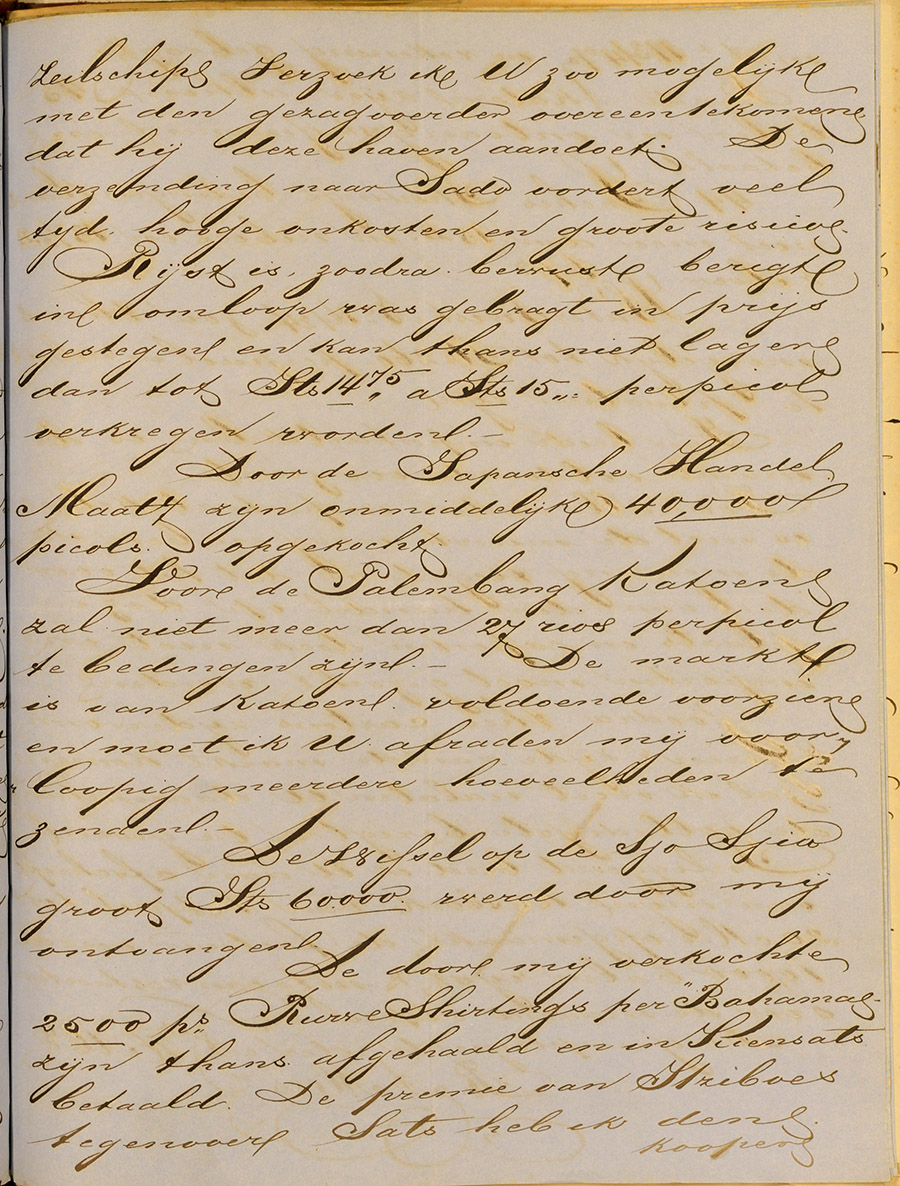 zeilschip Verzoek ik U zoo mogelijk
met den gezagvoerder overeentekomen
dat hij deze haven aandoet. De
verzending naar Sado vordert veel
tyd. hooge onkosten en groote risico.
Rijst is, zoodra bewuste berigte
in omloop was gebragt in prijs
gestegen en kan thans niet lager
dan tot Sts 14 75 a Sts 15 „ perpicol
verkregen worden. –
Door de Japansche Handel
Maatz zijn onmiddelijk 40,000
picols. opgekocht.
Voor de Palembang Katoen
zal niet meer dan 27 rios perpicol
te bedingen zijn. – De markt
is van Katoen. voldoende voorzien
en moet ik U afraden mij voor„
„loopig meerdere hoeveelheden te
zenden. –
De Wissel op de Sjo Sjia
groot Sts 60.000. werd door mij
ontvangen.
De door mij verkochte
2500 ps. Ruwe Shirtings per "Bahama"
zijn thans. afgehaald en in Kiensats
betaald. De premie van Striboes
tegenover Sats heb ik den
kooper